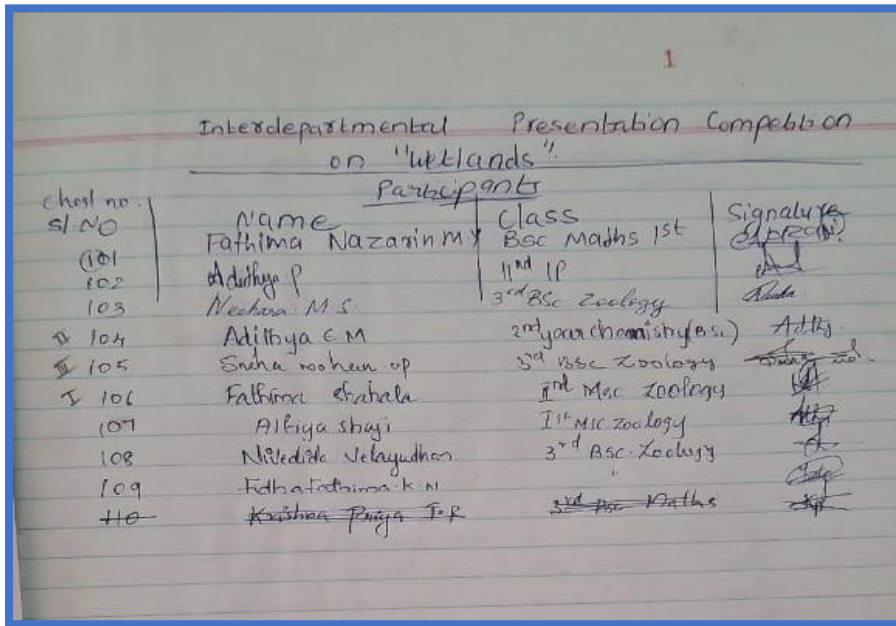 1
Interdepartmental Presentation Competition
on "Wetlands".
Participants
Chest no.
Sl. NO Name Class Signature
101 Fathima Nazarin M Y BSc Maths 1st
102 Adithya P IInd IP
103 Neehara M.S. 3rd BSc Zoology
II 104 Adithya C M 2nd year chemistry (Bsc.) Adthy
III 105 Sneha mohan op 3rd BSc Zoology
I 106 Fathima shahala IInd Msc Zoology
107 Alfiya shaji Ist MSC Zoology
108 Nivedida Velayudhan 3rd BSC. Zoology
109 Fidha fathima. K. N "
110 Krishna Priya T.R 3rd Bsc Maths